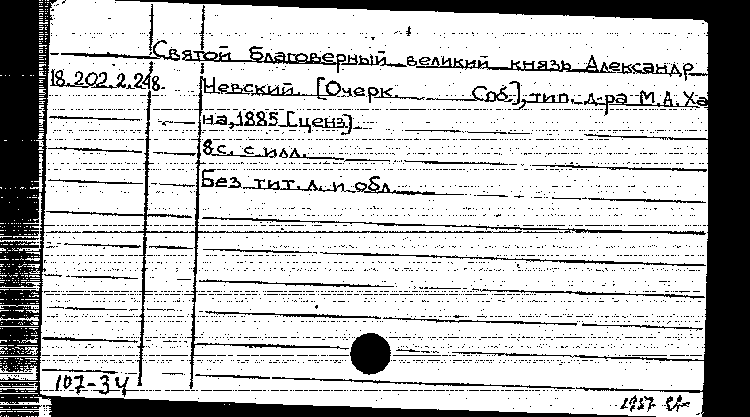 Святой благоверный великий князь Александр
18.202.2.248. Невский. [Очерк. Спб.], тип. д-ра М.А.Ха
на, 1885 [ценз]
8с. с илл.
Без тит. л. и обл.
107-34